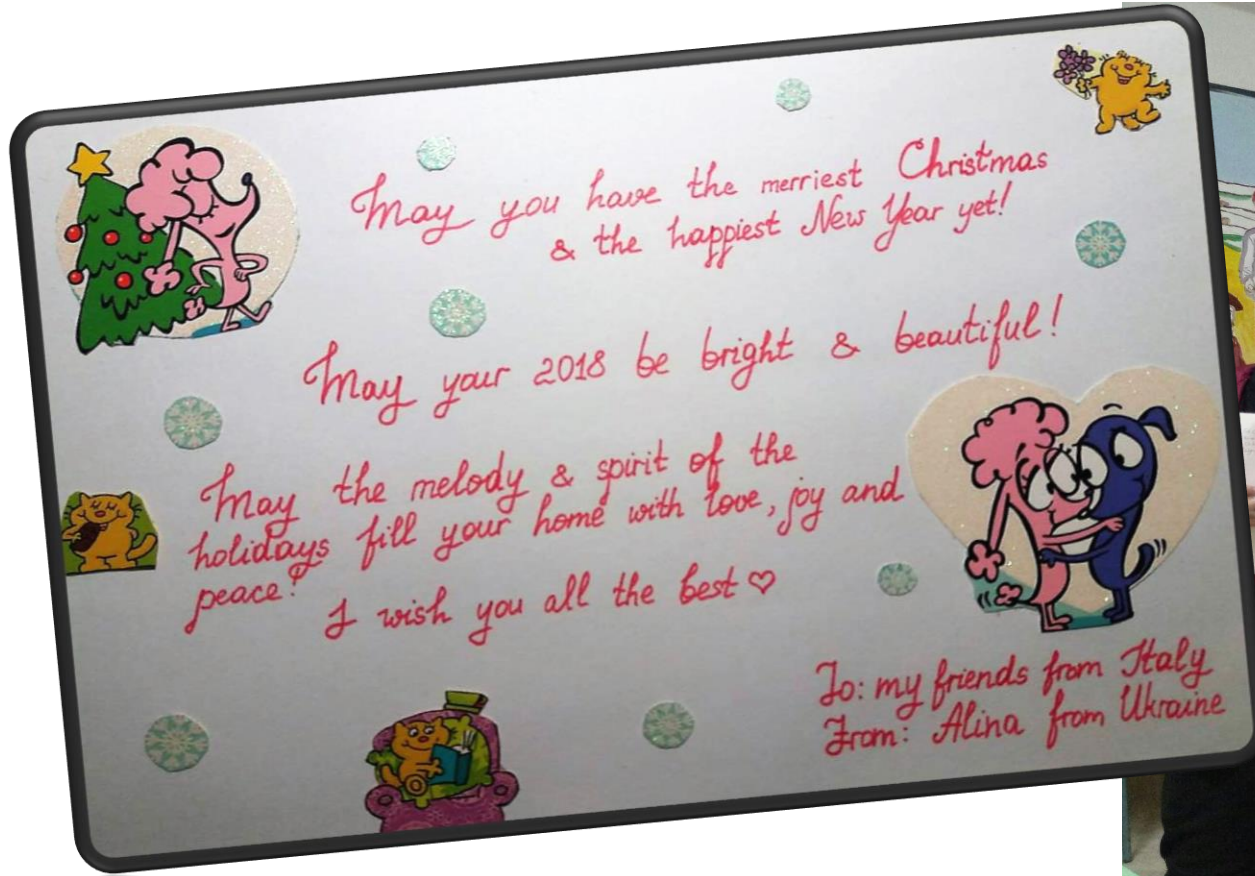 May you have the merriest Christmas
& the happiest New Year yet!
May your 2018 be bright & beautiful!
May the melody & spirit of the
holidays fill your home with love, joy and
peace!
I wish you all the best ♡
To: my friends from Italy
From: Alina from Ukraine